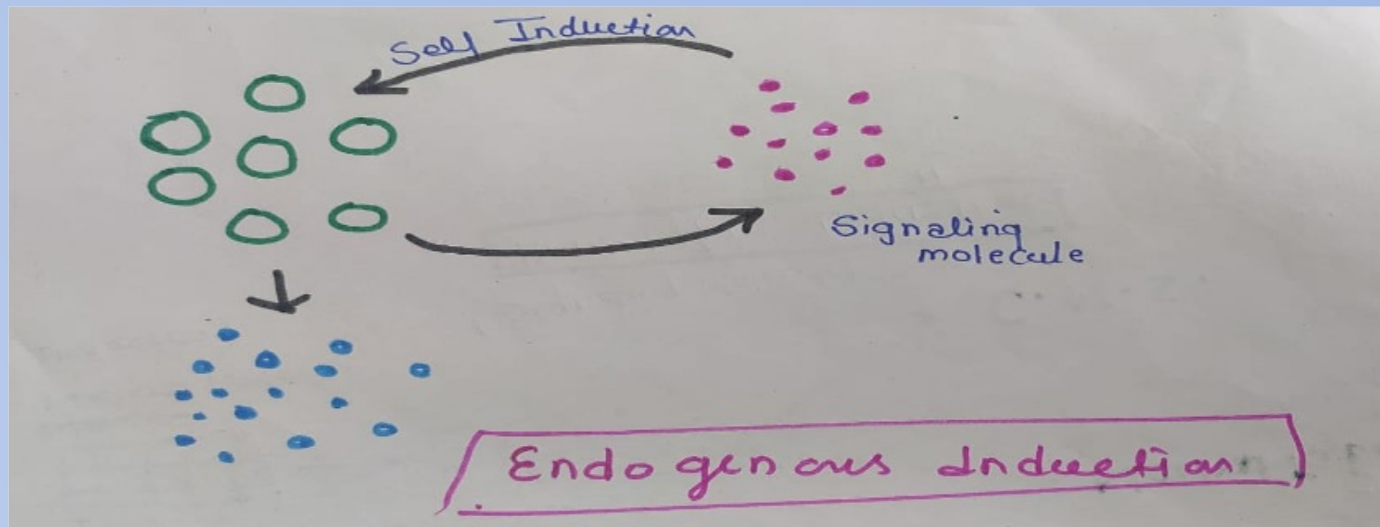 Self Induction
Signaling
molecule
Endogenous Induction